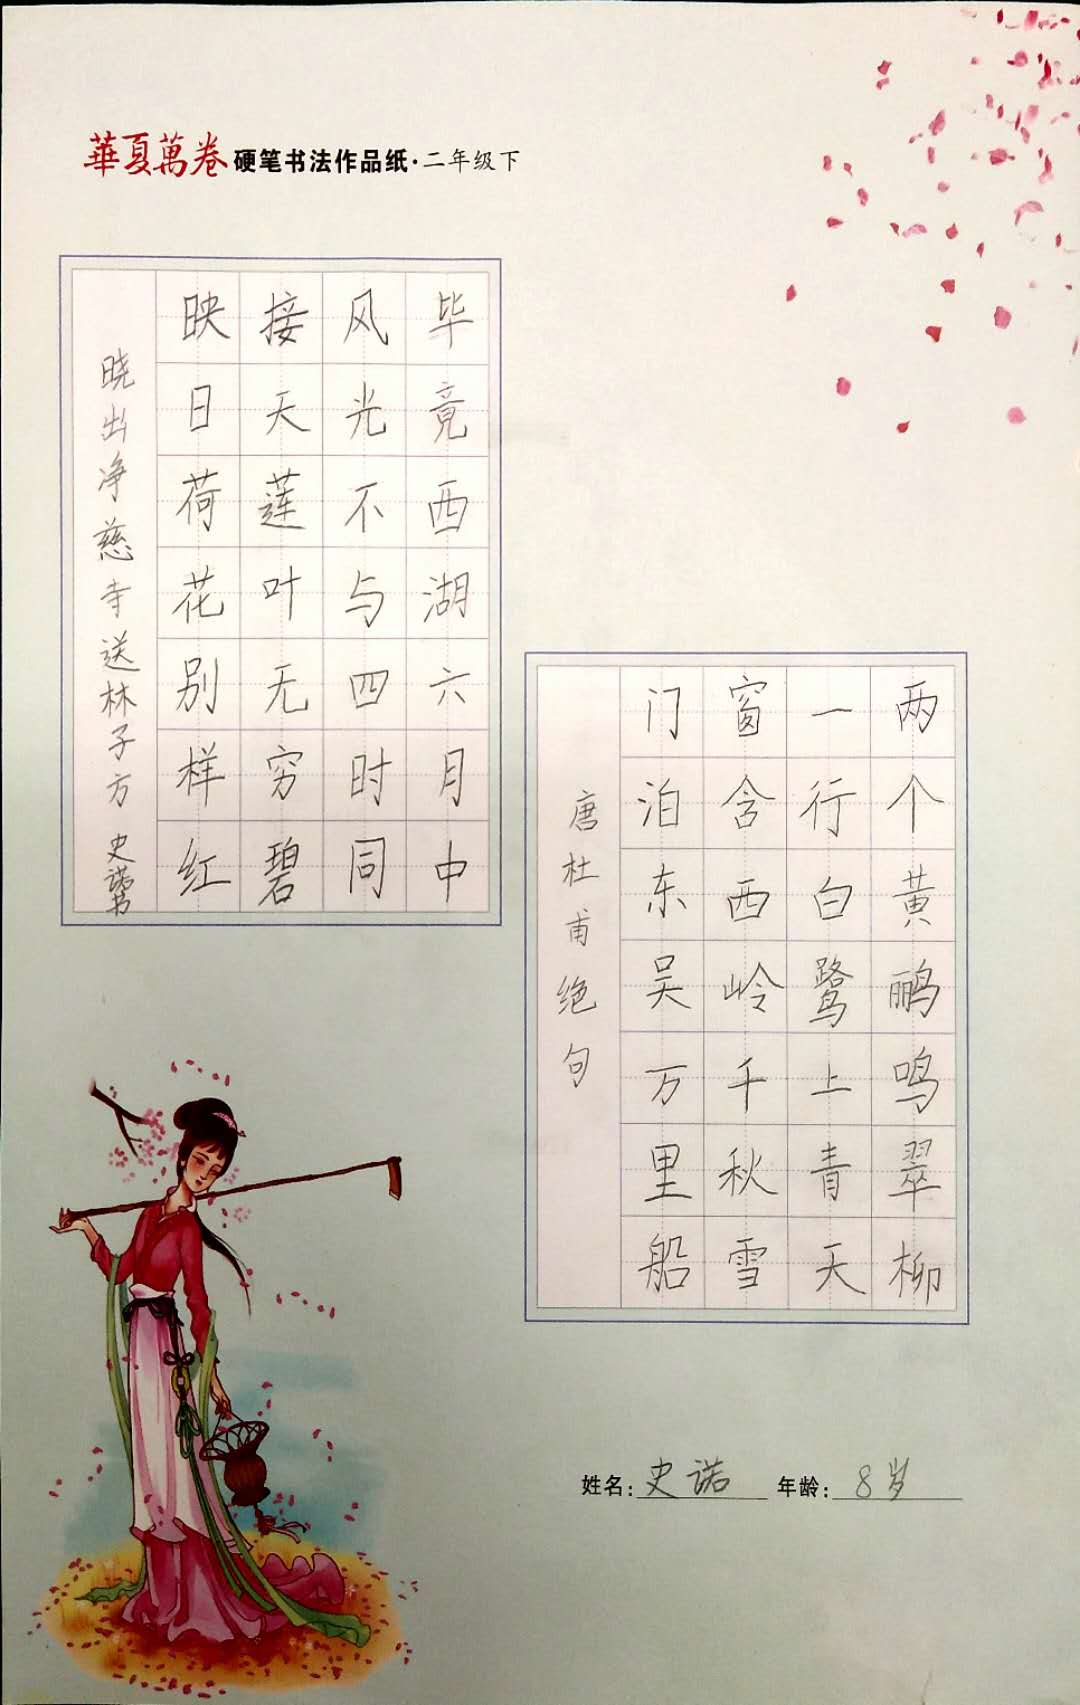 華夏萬卷 硬笔书法作品纸·二年级下
毕竟西湖六月中
风光不与四时同
接天莲叶无穷碧
映日荷花别样红
晓出净慈寺送林子方 史诺书
两个黄鹂鸣翠柳
一行白鹭上青天
窗含西岭千秋雪
门泊东吴万里船
唐杜甫绝句
姓名:史诺 年龄:8岁